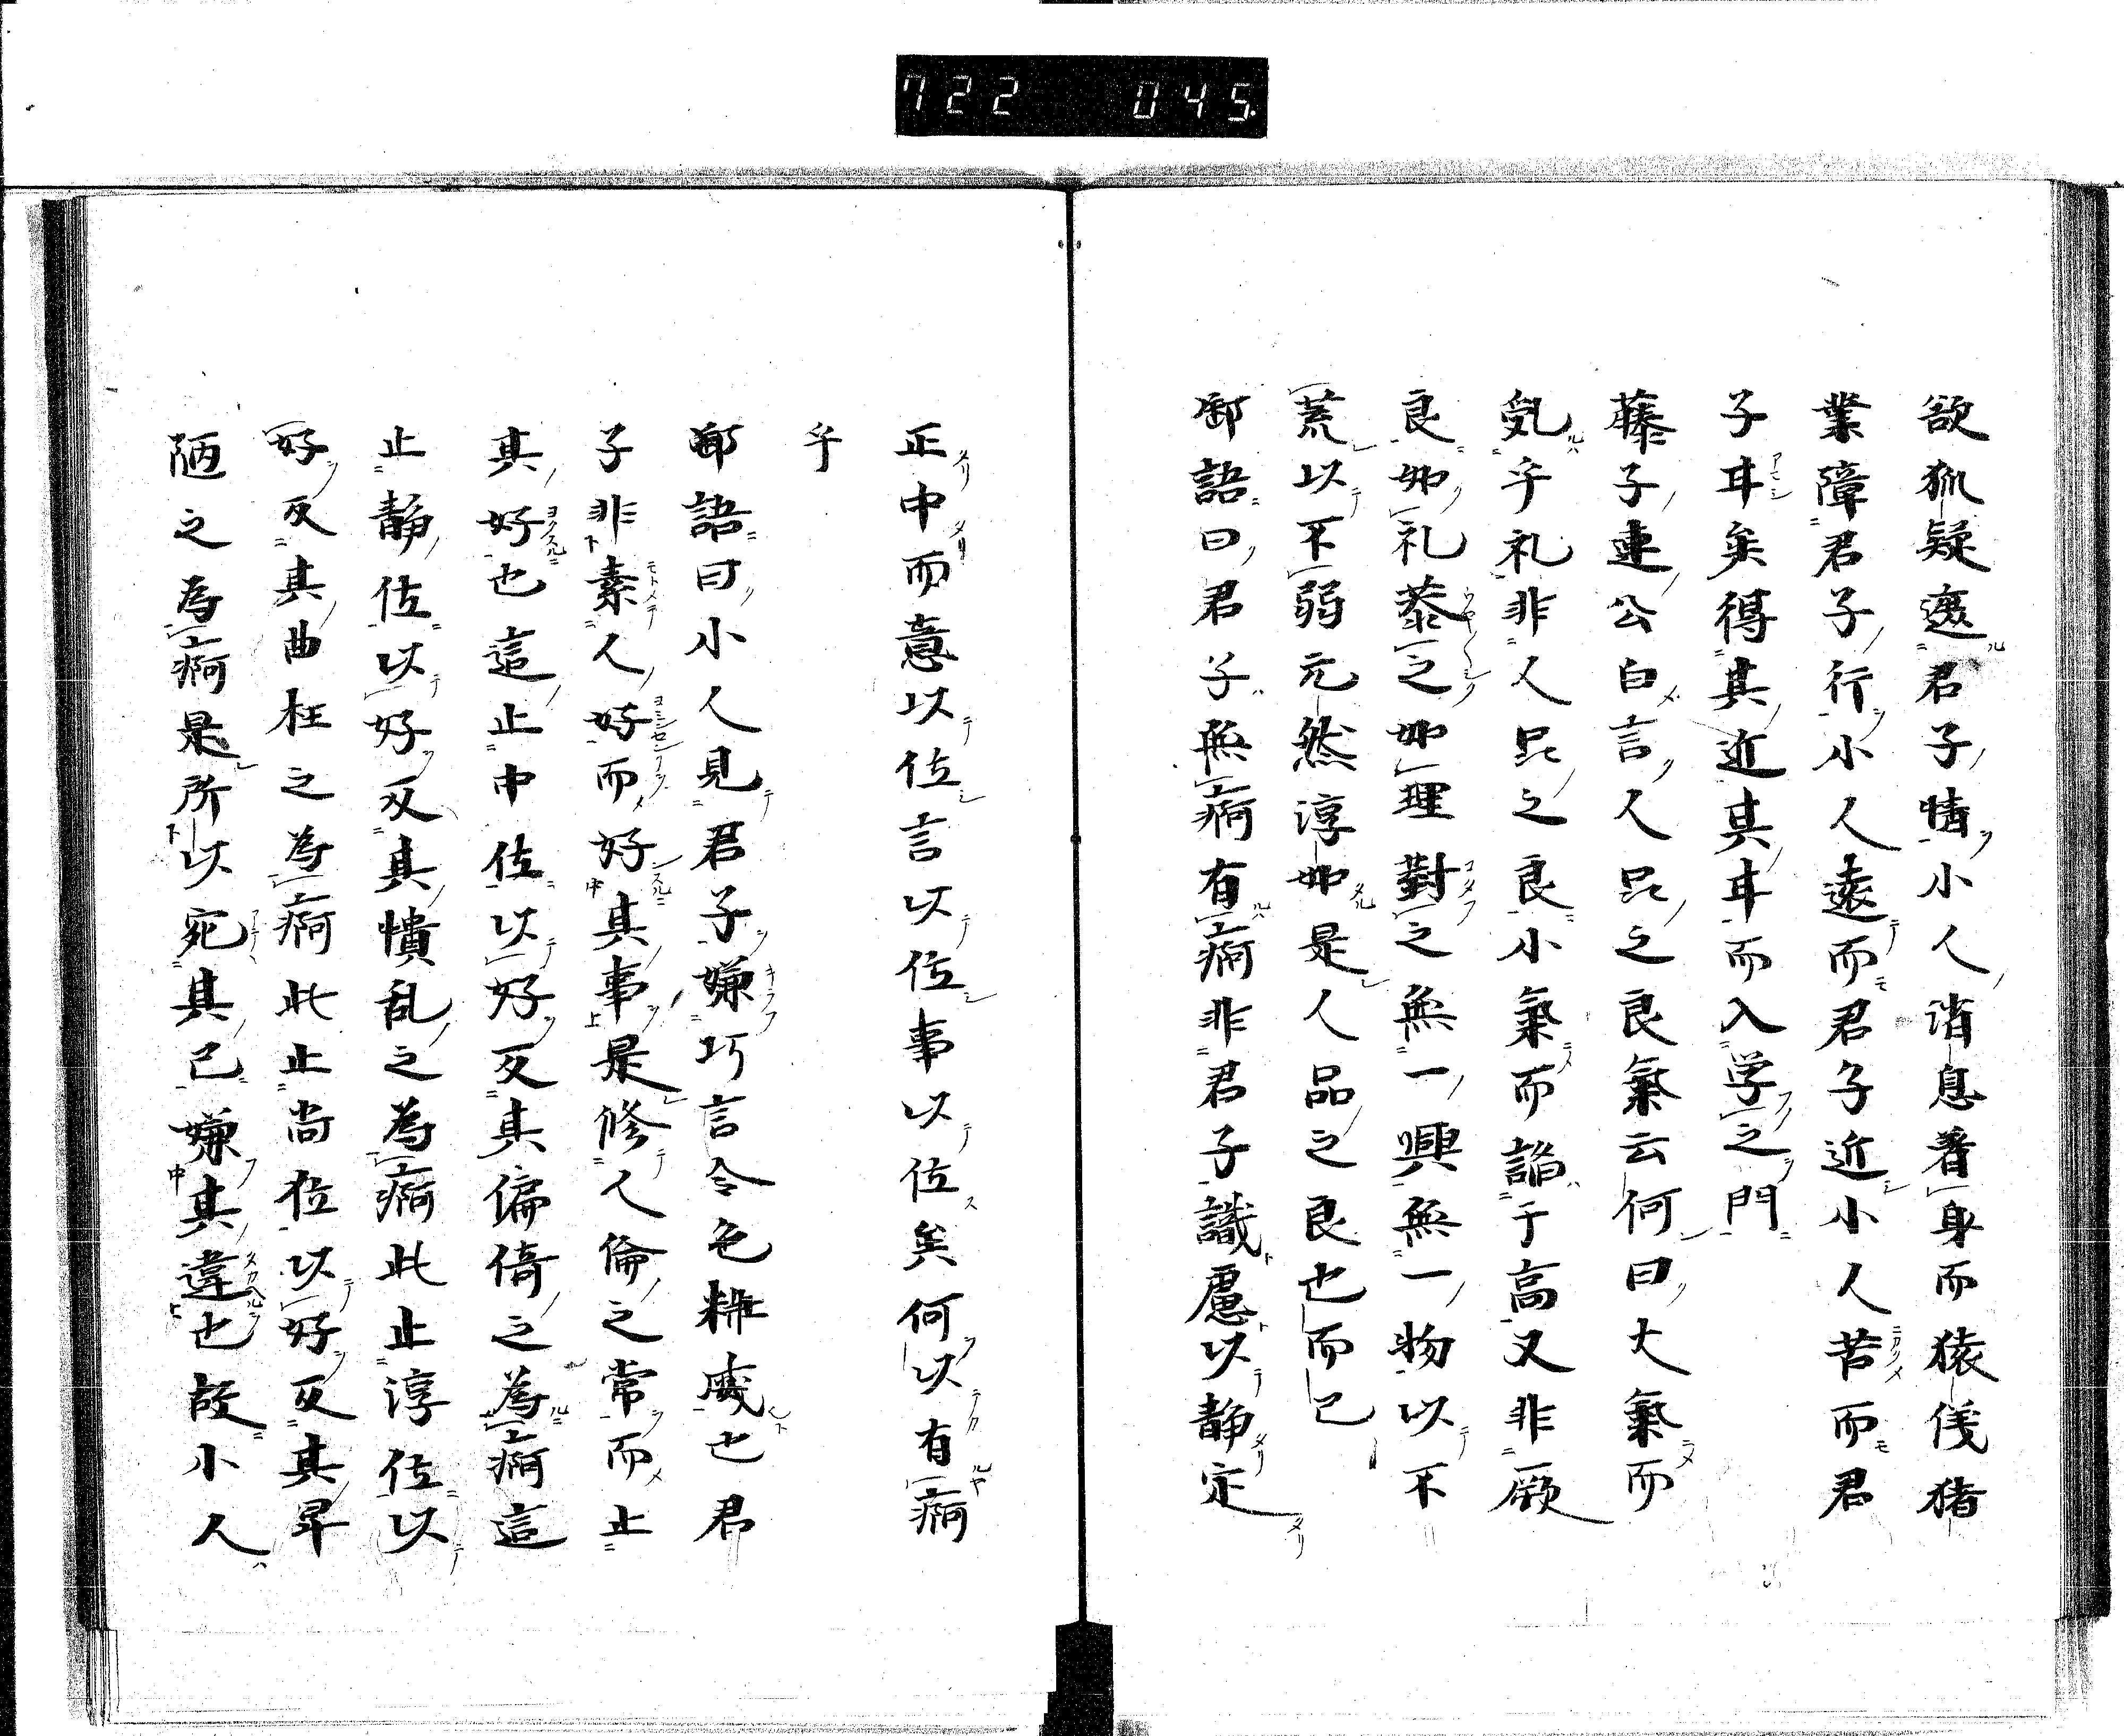 722 045
欲狐疑邊君子情小人消息著身而猿後猪
業障君子行小人遠而君子近小人苦而君
子耳矣得其近其耳而入学之門
藤子連公白言人品之良氣云何曰大氣而
気乎礼非人品之良小氣而諂于高又非厥
良如礼恭之如理對之無一興無一物以不
荒以不弱元然淳如是人品之良也而已
語曰君子無痾有痾非君子識慮以靜定
正中而意以位言以位事以位矣何以有痾
乎
語曰小人見君子嫌巧言令色也君
子非素人好而好其事是修人倫之常而止
其好也這止中位以好反其偏倚之為痾這
止靜位以好反其憒乱之為痾此止淳位以
好反其曲枉之為痾此止尚位以好反其卑
陋之為痾是所以宛其已嫌其違也故小人